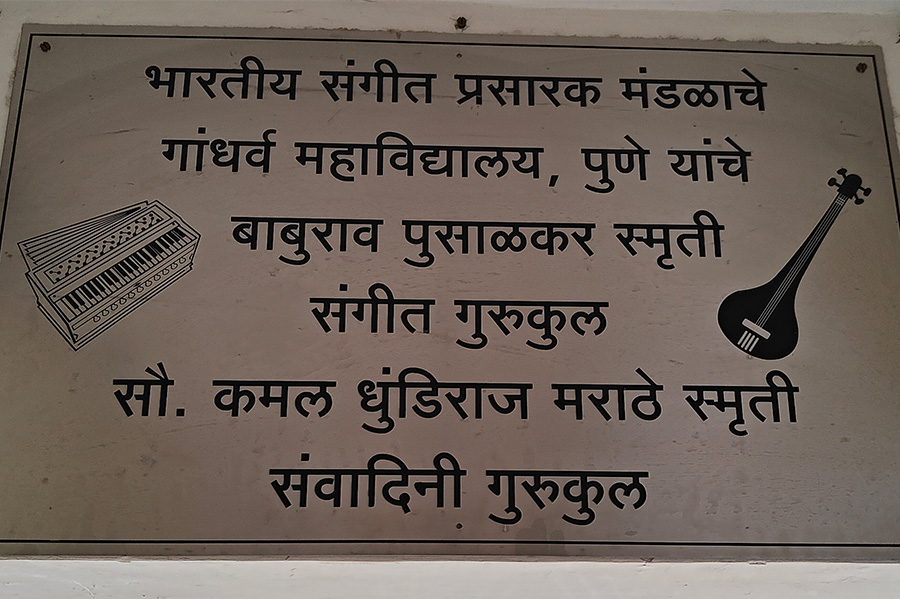 भारतीय संगीत प्रसारक मंडळाचे
गांधर्व महाविद्यालय, पुणे यांचे
बाबुराव पुसाळकर स्मृती
संगीत गुरुकुल
सौ. कमल धुंडिराज मराठे स्मृती
संवादिनी गुरुकुल